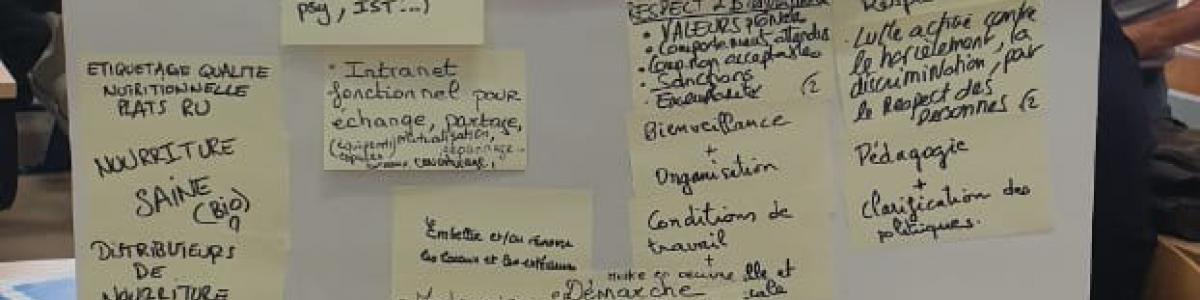 psy, IST...)
ETIQUETAGE QUALITE
NUTRITIONNELLE
PLATS RU
NOURRITURE
SAINE
(BIO)
DISTRIBUTEURS
DE
NOURRITURE
• Intranet
fonctionnel pour
échange, partage,
mutualisation,
dépannage...
Embellir et/ou rénover
les locaux et les extérieurs
RESPECT &
• VALEURS
• Comportements attendus
• Comp. non acceptables
• Sanctions
• Exemplarité (2
Bienveillance
+
Organisation
Conditions de
travail
+
mise en oeuvre
Démarche
Lutte active contre
le harcèlement, la
discrimination, par
le Respect des
personnes (2
Pédagogie
+
Clarification des
politiques.